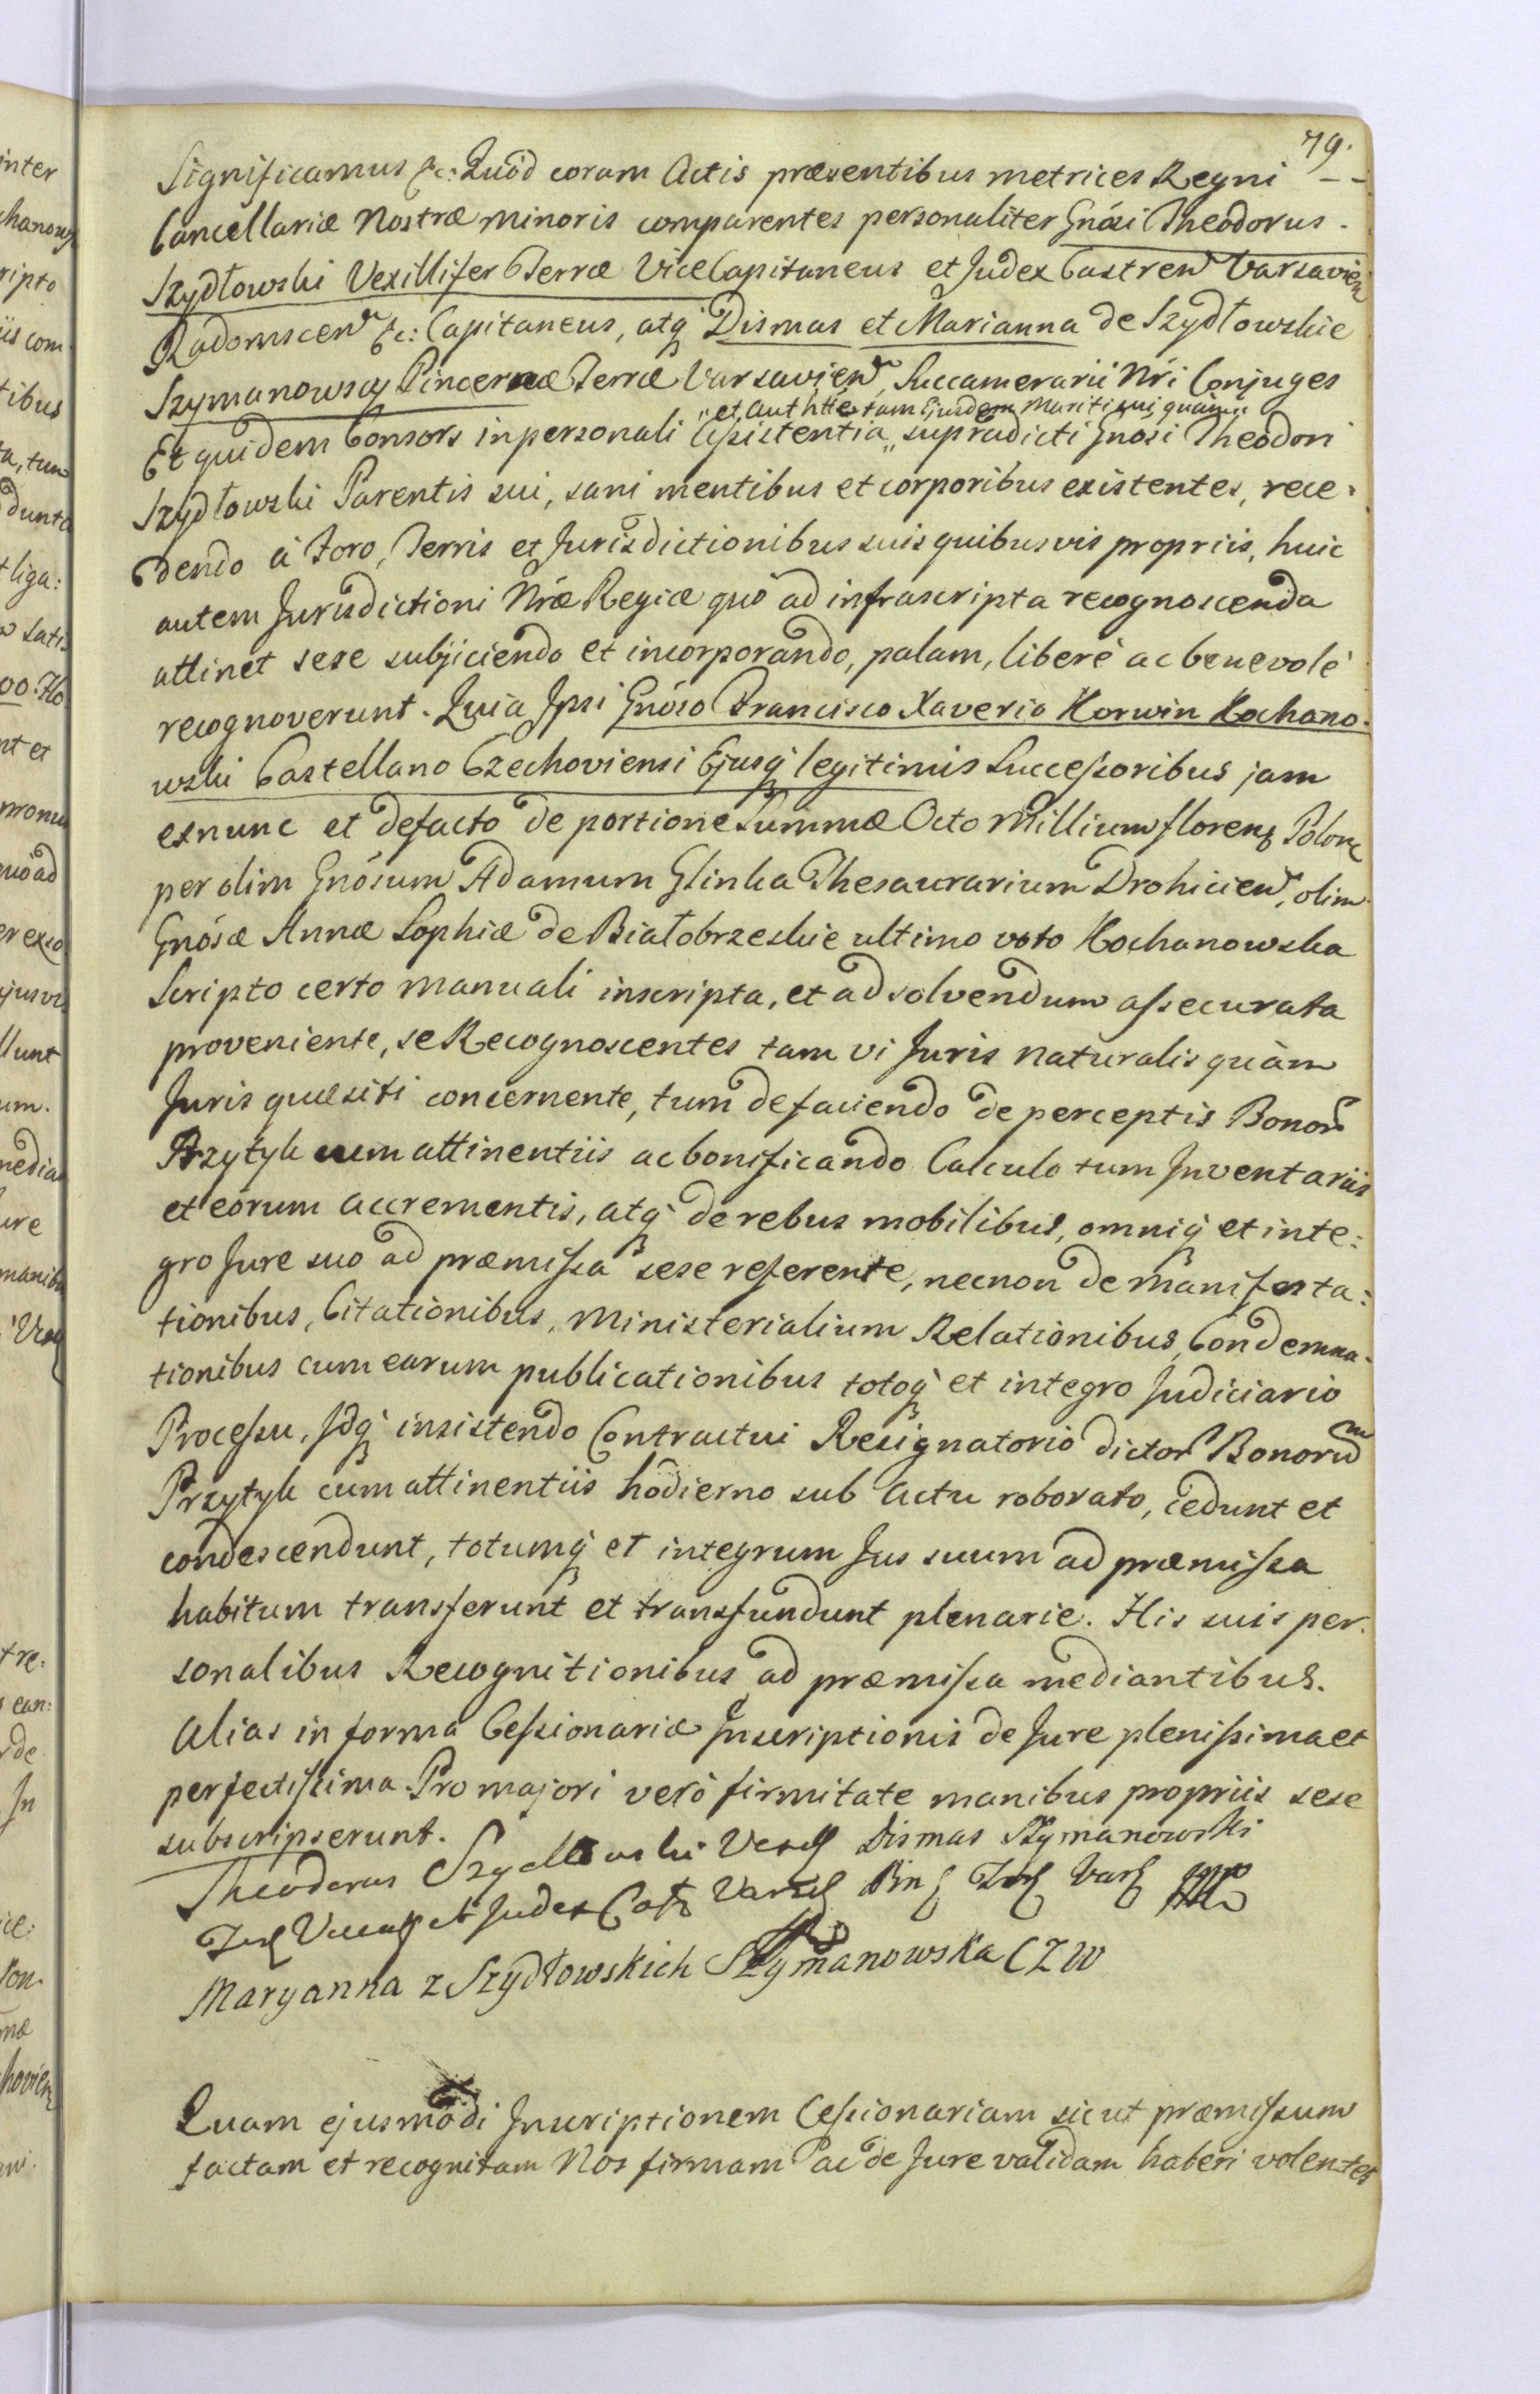 79.
Significamus &c: Quod coram Actis præsentibus metrices Regni
Cancellariæ Nostræ minoris comparentes personaliter Gnósi Theodorus
Szydłowski Vexillifer Terræ ViceCapitaneus et Judex Castren Varsavien
Radomscen &c: Capitaneus, atq́ Dismas et Marianna de Szydłowskie
Szymanowscy Pincernæ Terræ Varsavien, Succamerarii Nri Conjuges
"et Authte tam Ejusdem Mariti sui quàm"
Et quidem Consors in personali Assistentia " supradicti Gnosi Theodori
Szydłowski Parentis sui, sani mentibus et corporibus existentes, rece:
dendo à Foro, Terris et Jurisdictionibus suis quibusvis propriis, huic
autem Jurisdictioni Nræ Regiæ quò ad infrascripta recognoscenda
attinet sese subjiciendo et incorporando, palam, liberè ac benevolè
recognoverunt. Quia Ipsi Gnóso Francisco Xaverio Korwin Kochano:
wski Castellano Czechoviensi Ejusq́ legitimis Successoribus jam
exnunc et defacto de portione Summæ Octo Millium floren Polon
per olim Gnósum Adamum Glinka Thesaurarium Drohicien, olim
Gnósæ Annæ Sophiæ de Białobrzeskie ultimo voto Kochanowska
Scripto certo manuali inscripta, et ad solvendum assecurata
proveniente, se Recognoscentes tam vi Juris naturalis quàm
Juris quæsiti concernente, tum de faciendo de perceptis Bonor
Przytyk cum attinentiis ac bonificando Calculo tum Inventariis
et eorum accrementis, atq́ de rebus mobilibus, omniq́ et inte:
gro Jure suo ad præmissa sese referente, necnon de Manifesta:
tionibus, Citationibus, Ministerialium Relationibus, Condemna:
tionibus cum earum publicationibus totoq́ et integro Judiciario
Processu, Idq́ insistendo Contractui Resignatorio dictor Bonorum
Przytyk cum attinentiis hodierno sub Actu roborato, cedunt et
condescendunt, totumq́ et integrum Jus suum ad præmissa
habitum transferunt et transfundunt plenarie. His suis per:
sonalibus Recognitionibus ad præmissa mediantibus.
Alias in forma Cessionariæ Inscriptionis de Jure plenissima et
perfectissima. Pro majori verò firmitate manibus propriis sese
subscripserunt.
Theodorus Szydłowski Vex Dismas Szymanowski
Ter Vicecap et Judex Cas Vars Pin Ter Vars
Maryanna z Szydłowskich Szymanowska CZW
Quam ejusmodi Inscriptionem Cessionariam sicut præmissum
factam et recognitam Nos firmam ac de Jure validam haberi volentes